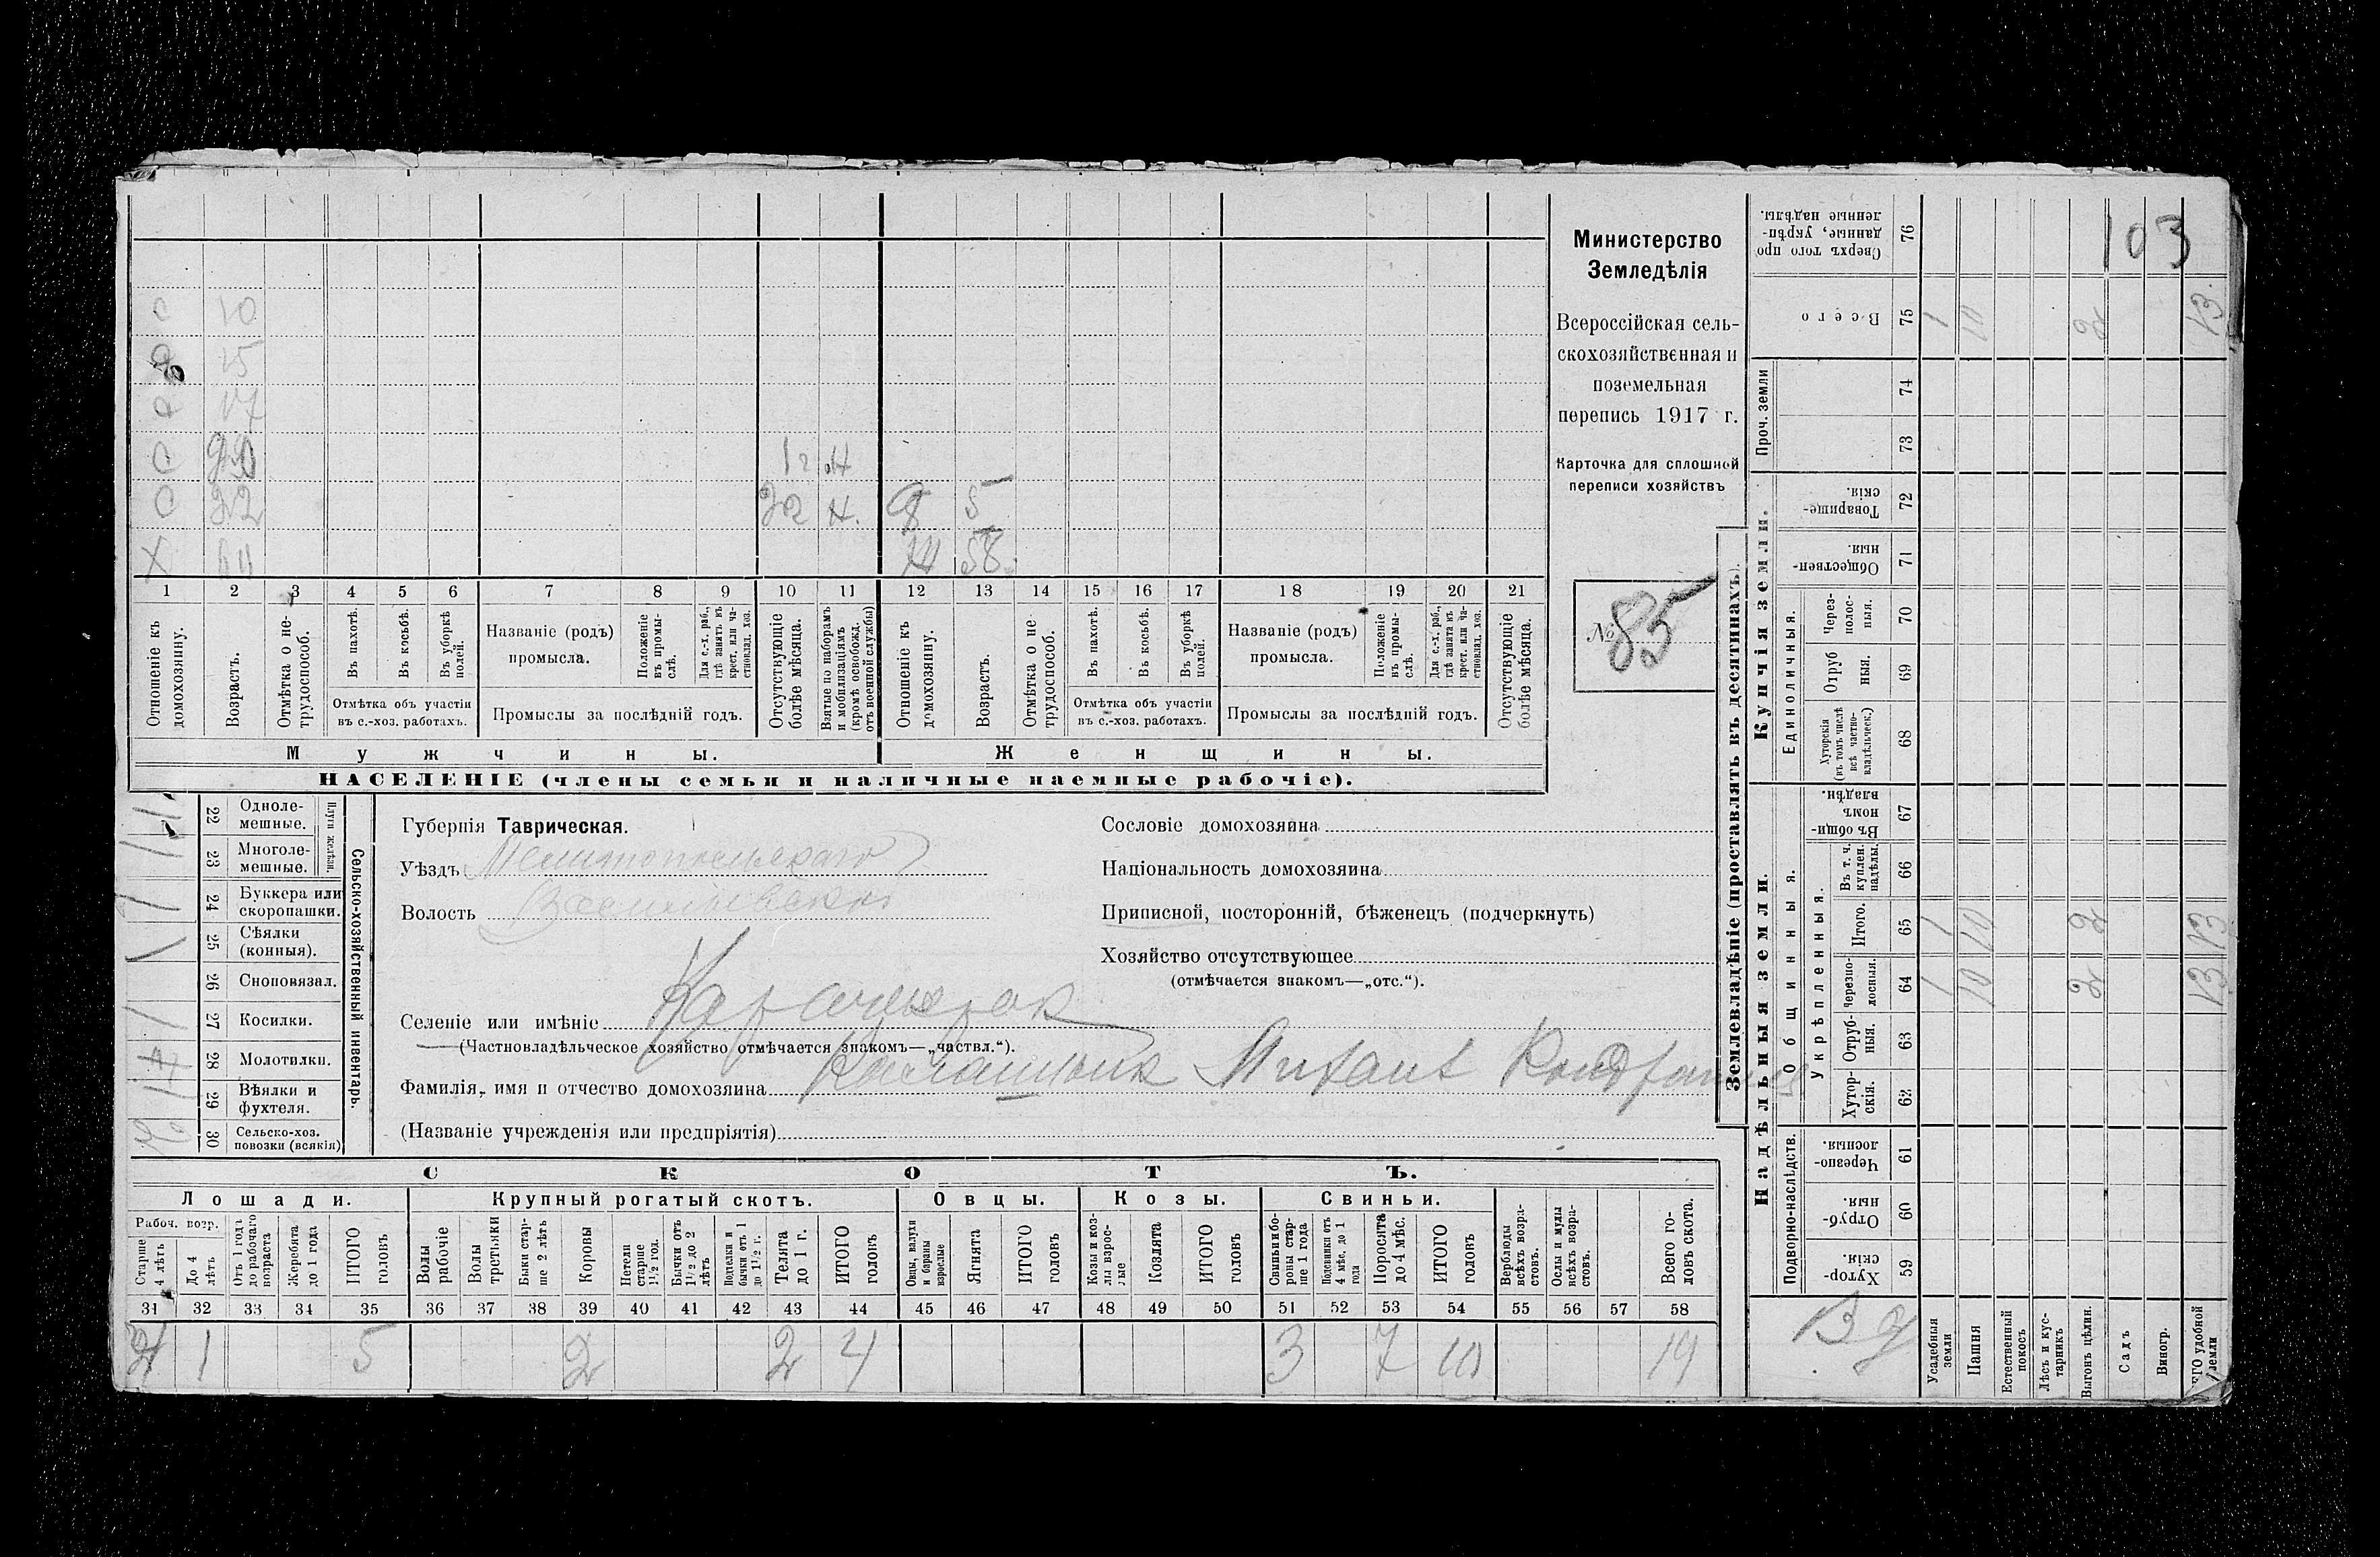 103
Министерство
Земледѣлія
Всероссійская сель-
скохозяйственная и
поземельная
перепись 1917 г.
Карточка для сплошной
переписи хозяйствъ
№ 85
с 10
15
17
с 1 2 н
с 22 22 н. 5
х 58
1 2 3 4 5 6 7 8 9 10 11 12 13 14 15 16 17 18 19 20 21
Отношеніе къ домохозяину.
Возрастъ.
Отмѣтка о не-трудоспособ.
Въ пахотѣ.
Въ косьбѣ.
Въ уборкѣ полей.
Отмѣтка объ участіи въ с.-хоз. работахъ.
Названіе (родъ) промысла.
Положеніе въ промы-слѣ.
Для с.-х. раб., гдѣ занятъ въ крест. или ча-стновлад. хоз.
Промыслы за послѣдній годъ.
Отсутствующіе болѣе мѣсяца.
Взятые по наборамъ и мобилизаціямъ (кромѣ освобожд. отъ военной службы)
Отношеніе къ домохозяину.
Возрастъ.
Отмѣтка о не-трудоспособ.
Въ пахотѣ.
Въ косьбѣ.
Въ уборкѣ полей.
Отмѣтка объ участіи въ с.-хоз. работахъ.
Названіе (родъ) промысла.
Положеніе въ промы-слѣ.
Для с.-х. раб., гдѣ занята въ крест. или ча-стновлад. хоз.
Промыслы за послѣдній годъ.
Отсутствующіе болѣе мѣсяца.
Мужчины. Женщины.
НАСЕЛЕНІЕ (члены семьи и наличные наемные рабочіе).
Сельско-хозяйственный инвентарь.
Плуги желѣзн.
22 Одноле-мешные. 1
23 Многоле-мешные. 1
24 Буккера или скоропашки. 1
25 Сѣялки (конныя). 1
26 Сноповязал.
27 Косилки. 1
28 Молотилки.
29 Вѣялки и фухтеля. 1
30 Сельско-хоз. повозки (всякія)
Губернія Таврическая.
Уѣздъ Мелитопольскаго
Волость Васильевской
Селеніе или имѣніе Карачекрак
(Частновладѣльческое хозяйство отмѣчается знакомъ—„частвл.“).
Фамилія, имя и отчество домохозяина
(Названіе учрежденія или предпріятія)
Сословіе домохозяина
Національность домохозяина
Приписной, посторонній, бѣженецъ (подчеркнуть)
Хозяйство отсутствующее
(отмѣчается знакомъ—„отс.“).
СКОТЪ.
Лошади. Крупный рогатый скотъ. Овцы. Козы. Свиньи.
Рабоч. возр.
Старше 4 лѣтъ
До 4 лѣтъ
Отъ 1 года до рабочаго возраста
Жеребята до 1 года
ИТОГО головъ
Волы рабочіе
Волы третьяки
Быки стар-ше 2 лѣтъ
Коровы
Нетели старше 1½ год.
Бычки отъ 1½ до 2 лѣтъ
Подтелки и бычки отъ 1 до 1½ г.
Телята до 1 г.
ИТОГО головъ
Овцы, валухи и бараны взрослые
Ягнята
ИТОГО головъ
Козы и коз-лы взрос-лые
Козлята
ИТОГО головъ
Свиньи и бо-ровы стар-ше 1 года
Подсвинки отъ 4 мѣс. до 1 года
Поросята до 4 мѣс.
ИТОГО головъ
Верблюды всѣхъ возра-стовъ.
Ослы и мулы всѣхъ возра-стовъ.
Всего го-ловъ скота.
31 32 33 34 35 36 37 38 39 40 41 42 43 44 45 46 47 48 49 50 51 52 53 54 55 56 57 58
1 5 2 2 4 3 7 10 19
Землевладѣніе (проставлять въ десятинахъ).
Купчія земли.
Надѣльныя земли.
Проч. земли
Единоличныя.
Общинныя.
Укрѣпленныя.
Подворно-наслѣдств.
76 Сверхъ того про-данные, укрѣп-ленные надѣлы.
75 Всего 1 10 2 13.
74
73
72 Товарище-скія.
71 Обществен-ныя.
70 Через-полос-ныя.
69 Отруб-ныя.
68 Хуторскія (въ томъ числѣ всѣ частно-владѣльческ.)
67 Въ общи-номъ владѣн.
66 Въ т. ч. куплен. надѣлы.
65 Итого. 1 10 2 13
64 Черезпо-лосныя. 1 10 2 13
63 Отруб-ныя.
62 Хутор-скія.
61 Черезпо-лосныя.
60 Отруб-ныя.
59 Хутор-скія.
Усадебныя земли
Пашня
Естественный покосъ
Лѣсъ и кус-тарникъ
Выгонъ цѣлин.
Садъ
Виногр.
ИТОГО удобной земли